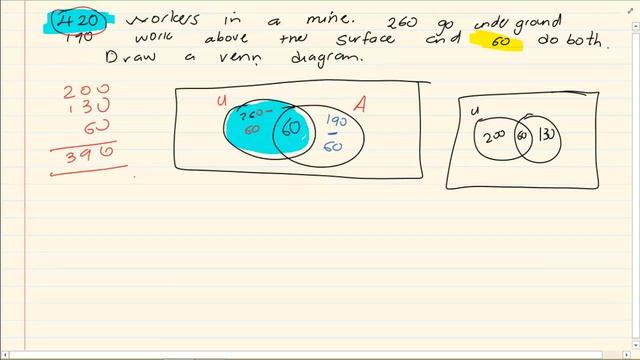 420 workers in a mine. 260 go underground
190 work above the surface and 60 do both.
Draw a venn diagram.
200
130
60
390
U
A
260-
60
60
190
-
60
U
200 60 130